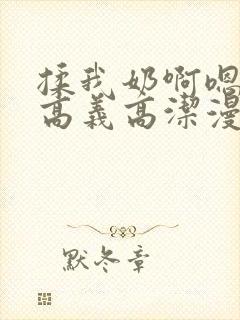 揉我奶啊嗯
高义高潔漫
默冬章